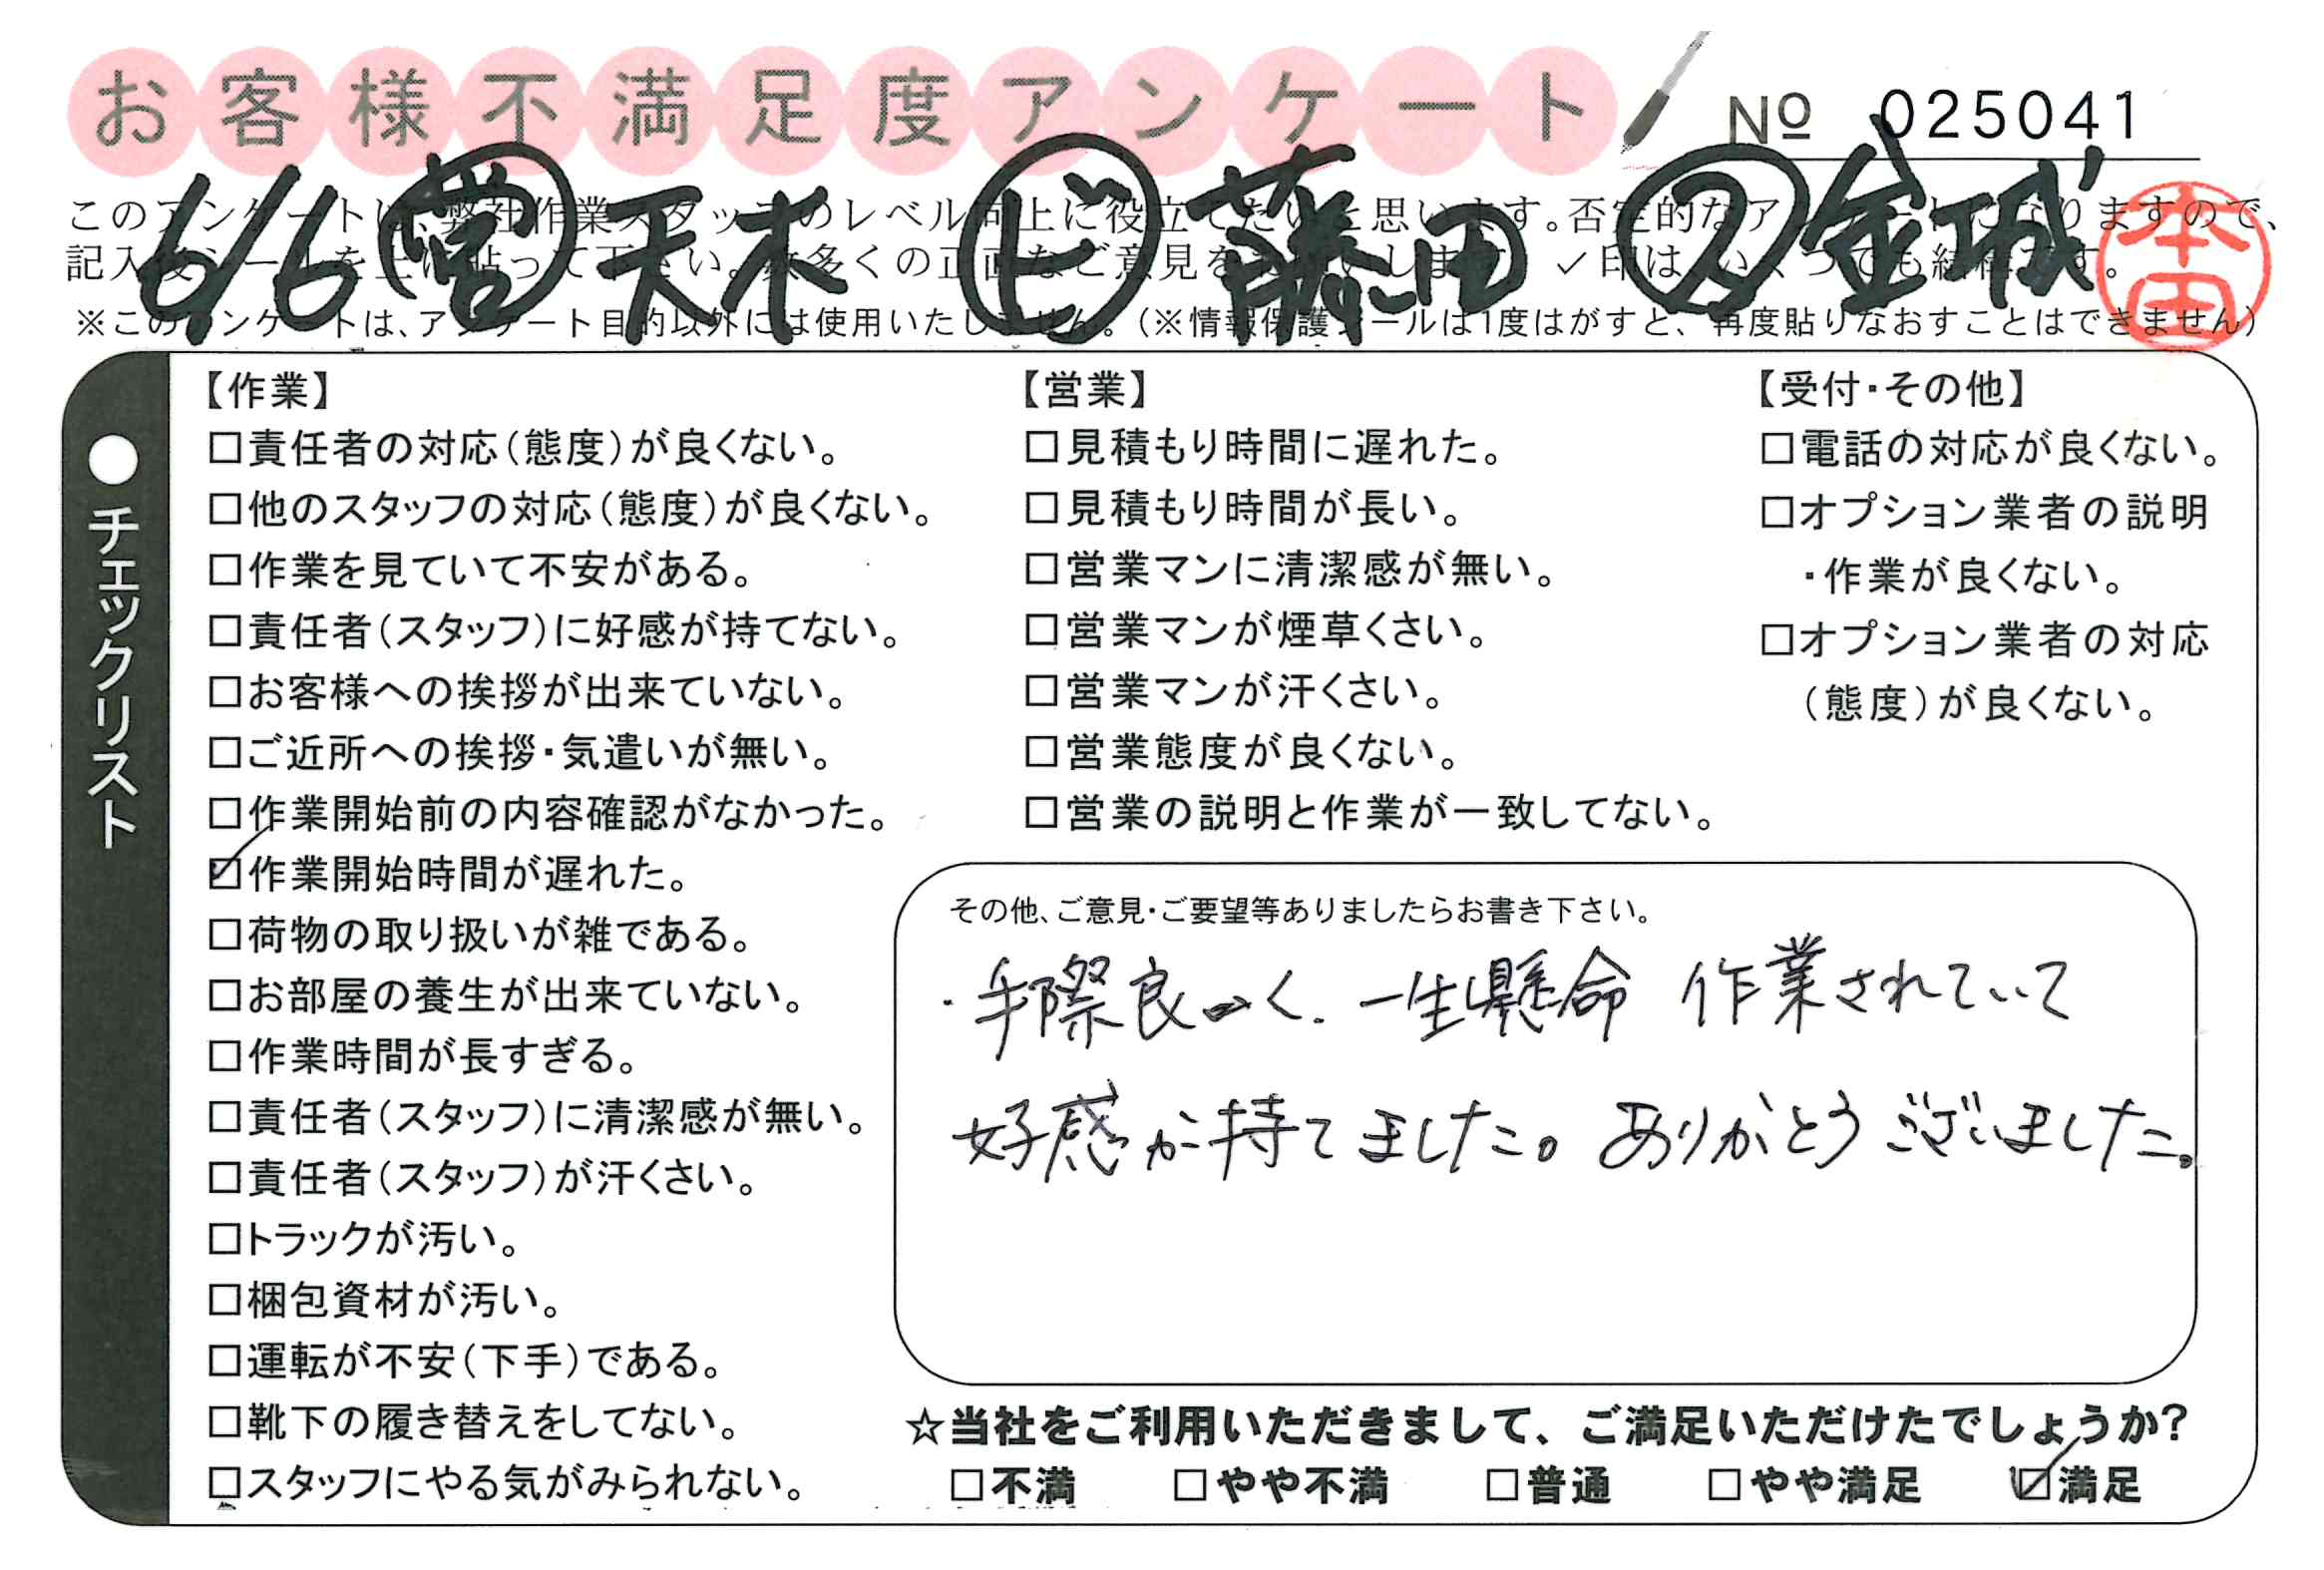 お客様不満足度アンケート
No 025041
6/6 ㊡営 天木 ヒ 藤田 ス 金城
本田
このアンケートは、弊社作業スタッフのレベル向上に役立てたいと思います。否定的なアンケートになりますので、
記入後シールを上に貼って下さい。数多くの正直なご意見をお願いします。✓印は、いくつでも結構です。
※このアンケートは、アンケート目的以外には使用いたしません。(※情報保護シールは1度はがすと、再度貼りなおすことはできません)
●チェックリスト
【作業】
□責任者の対応(態度)が良くない。
□他のスタッフの対応(態度)が良くない。
□作業を見ていて不安がある。
□責任者(スタッフ)に好感が持てない。
□お客様への挨拶が出来ていない。
□ご近所への挨拶・気遣いが無い。
□作業開始前の内容確認がなかった。
☑作業開始時間が遅れた。
□荷物の取り扱いが雑である。
□お部屋の養生が出来ていない。
□作業時間が長すぎる。
□責任者(スタッフ)に清潔感が無い。
□責任者(スタッフ)が汗くさい。
□トラックが汚い。
□梱包資材が汚い。
□運転が不安(下手)である。
□靴下の履き替えをしてない。
□スタッフにやる気がみられない。
【営業】
□見積もり時間に遅れた。
□見積もり時間が長い。
□営業マンに清潔感が無い。
□営業マンが煙草くさい。
□営業マンが汗くさい。
□営業態度が良くない。
□営業の説明と作業が一致してない。
【受付・その他】
□電話の対応が良くない。
□オプション業者の説明
・作業が良くない。
□オプション業者の対応
(態度)が良くない。
その他、ご意見・ご要望等ありましたらお書き下さい。
・手際良く、一生懸命 作業されていて
好感が持てました。ありがとうございました。
☆当社をご利用いただきまして、ご満足いただけたでしょうか?
□不満 □やや不満 □普通 □やや満足 ☑満足